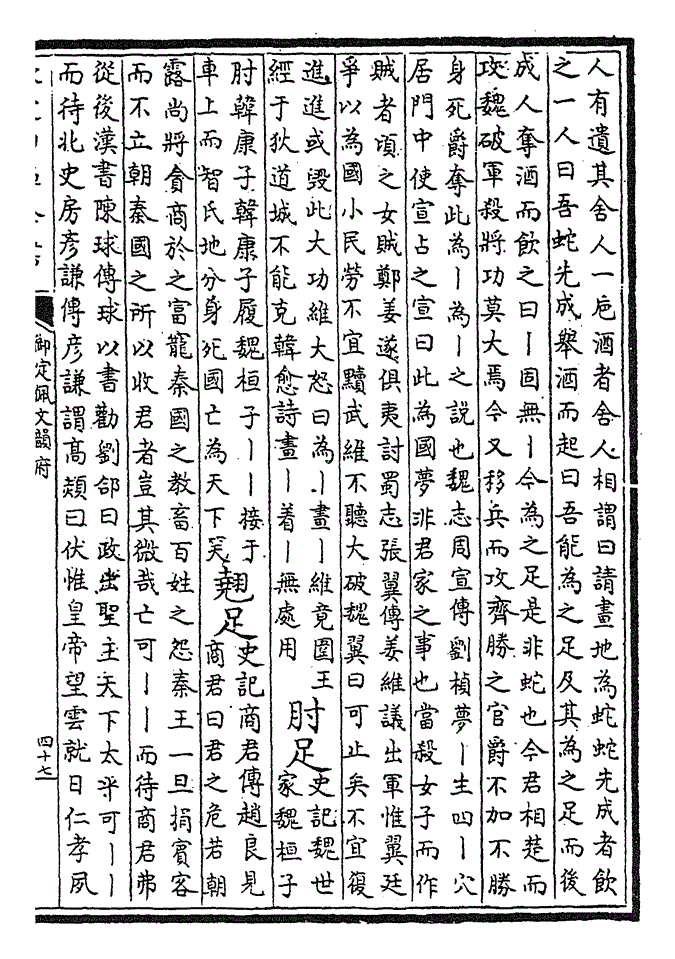 人有遺其舍人一巵酒者舍人相謂曰請畫地為蛇蛇先成者飲
之一人曰吾蛇先成舉酒而起曰吾能為之足及其為之足而後
成人奪酒而飲之曰丨固無丨今為之足是非蛇也今君相楚而
攻魏破軍殺將功莫大焉今又移兵而攻齊勝之官爵不加不勝
身死爵奪此為丨為丨之說也魏志周宣傳劉楨夢丨生四丨穴
居門中使宣占之宣曰此為國夢非君家之事也當殺女子而作
賊者頃之女賊鄭姜遂俱夷討蜀志張翼傳姜維議出軍惟翼廷
爭以為國小民勞不宜黷武維不聽大破魏翼曰可止矣不宜復
進進或毀此大功維大怒曰為丨畫丨維竟圍王
經于狄道城不能克韓愈詩畫丨着丨無處用
肘足
史記魏世
家魏桓子
肘韓康子韓康子履魏桓子丨丨接于
車上而智氏地分身死國亡為天下笑
翹足
史記商君傳趙良見
商君曰君之危若朝
露尚將貪商於之富寵秦國之教畜百姓之怨秦王一旦捐賓客
而不立朝秦國之所以收君者豈其微哉亡可丨丨而待商君弗
從後漢書陳球傳球以書勸劉郃曰政出聖主天下太平可丨丨
而待北史房彥謙傳彥謙謂高熲曰伏惟皇帝望雲就日仁孝夙
御定佩文韻府
四十七